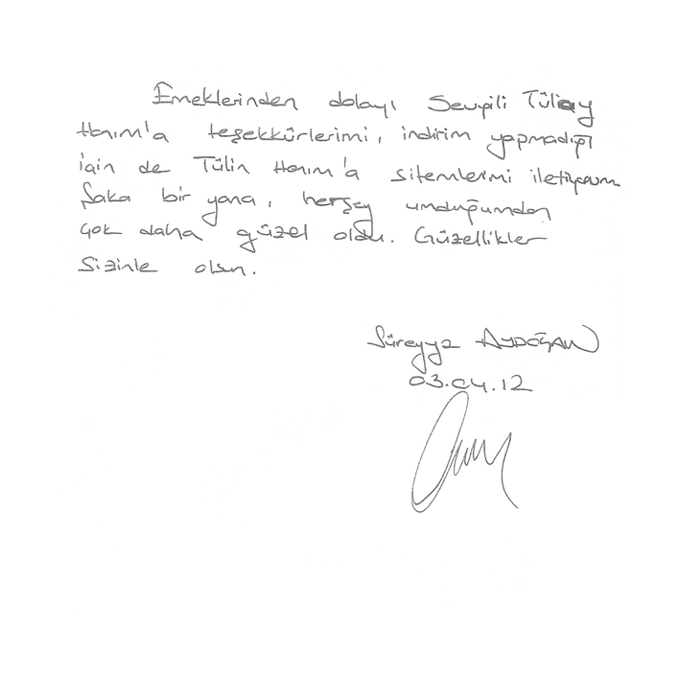 Emeklerinden dolayı Sevgili Tülay
Hanım'a teşekkürlerimi, indirim yapmadığı
için de Tülin Hanım'a sitemlerimi iletiyorum.
Şaka bir yana, herşey umduğumdan
çok daha güzel oldu. Güzellikler
sizinle olsun.
Süreyya AYDOĞAN
03.04.12